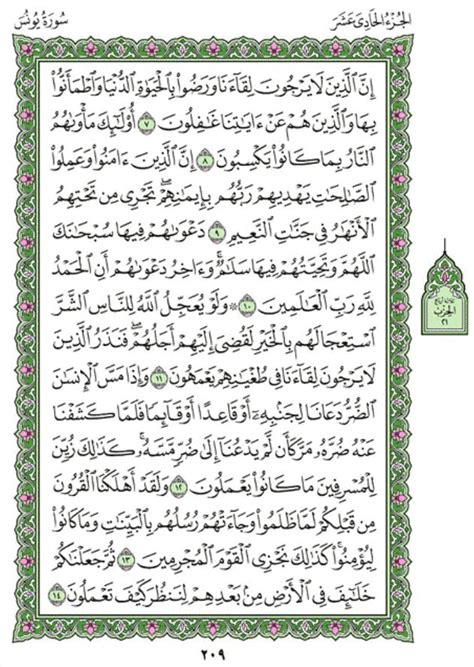 الجزء الحادى عشر
سورة يونس
إِنَّ ٱلَّذِينَ لَا يَرْجُونَ لِقَآءَنَا وَرَضُوا۟ بِٱلْحَيَوٰةِ ٱلدُّنْيَا وَٱطْمَأَنُّوا۟
بِهَا وَٱلَّذِينَ هُمْ عَنْ ءَايَٰتِنَا غَٰفِلُونَ ٧ أُو۟لَٰٓئِكَ مَأْوَىٰهُمُ
ٱلنَّارُ بِمَا كَانُوا۟ يَكْسِبُونَ ٨ إِنَّ ٱلَّذِينَ ءَامَنُوا۟ وَعَمِلُوا۟
ٱلصَّٰلِحَٰتِ يَهْدِيهِمْ رَبُّهُم بِإِيمَٰنِهِمْ ۖ تَجْرِى مِن تَحْتِهِمُ
ٱلْأَنْهَٰرُ فِى جَنَّٰتِ ٱلنَّعِيمِ ٩ دَعْوَىٰهُمْ فِيهَا سُبْحَٰنَكَ
ٱللَّهُمَّ وَتَحِيَّتُهُمْ فِيهَا سَلَٰمٌ ۚ وَءَاخِرُ دَعْوَىٰهُمْ أَنِ ٱلْحَمْدُ
لِلَّهِ رَبِّ ٱلْعَٰلَمِينَ ١٠ ۞ وَلَوْ يُعَجِّلُ ٱللَّهُ لِلنَّاسِ ٱلشَّرَّ
ٱسْتِعْجَالَهُم بِٱلْخَيْرِ لَقُضِىَ إِلَيْهِمْ أَجَلُهُمْ ۖ فَنَذَرُ ٱلَّذِينَ
لَا يَرْجُونَ لِقَآءَنَا فِى طُغْيَٰنِهِمْ يَعْمَهُونَ ١١ وَإِذَا مَسَّ ٱلْإِنسَٰنَ
ٱلضُّرُّ دَعَانَا لِجَنۢبِهِۦٓ أَوْ قَاعِدًا أَوْ قَآئِمًا فَلَمَّا كَشَفْنَا
عَنْهُ ضُرَّهُۥ مَرَّ كَأَن لَّمْ يَدْعُنَآ إِلَىٰ ضُرٍّ مَّسَّهُۥ ۚ كَذَٰلِكَ زُيِّنَ
لِلْمُسْرِفِينَ مَا كَانُوا۟ يَعْمَلُونَ ١٢ وَلَقَدْ أَهْلَكْنَا ٱلْقُرُونَ
مِن قَبْلِكُمْ لَمَّا ظَلَمُوا۟ وَجَآءَتْهُمْ رُسُلُهُم بِٱلْبَيِّنَٰتِ وَمَا كَانُوا۟
لِيُؤْمِنُوا۟ ۚ كَذَٰلِكَ نَجْزِى ٱلْقَوْمَ ٱلْمُجْرِمِينَ ١٣ ثُمَّ جَعَلْنَٰكُمْ
خَلَٰٓئِفَ فِى ٱلْأَرْضِ مِنۢ بَعْدِهِمْ لِنَنظُرَ كَيْفَ تَعْمَلُونَ ١٤
الحزب
٢١
٢٠٩